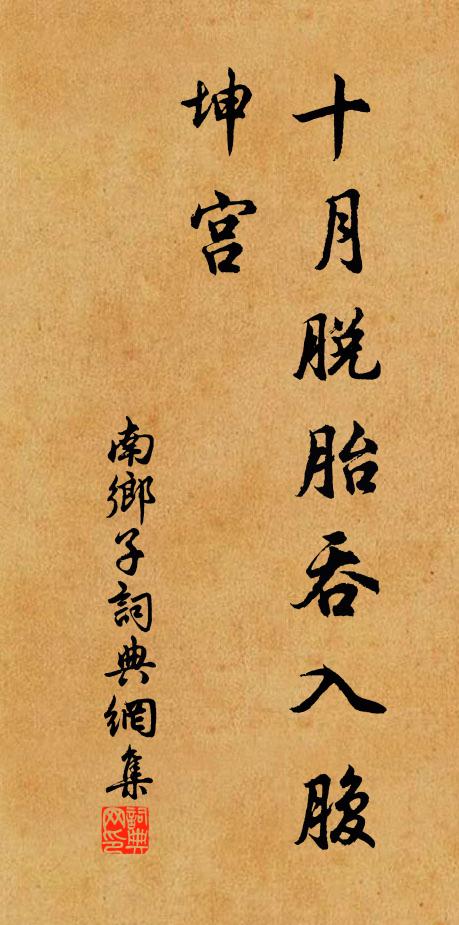 十月脱胎吞入腹
坤宫
南鄉子詞典網集
詞典
网印